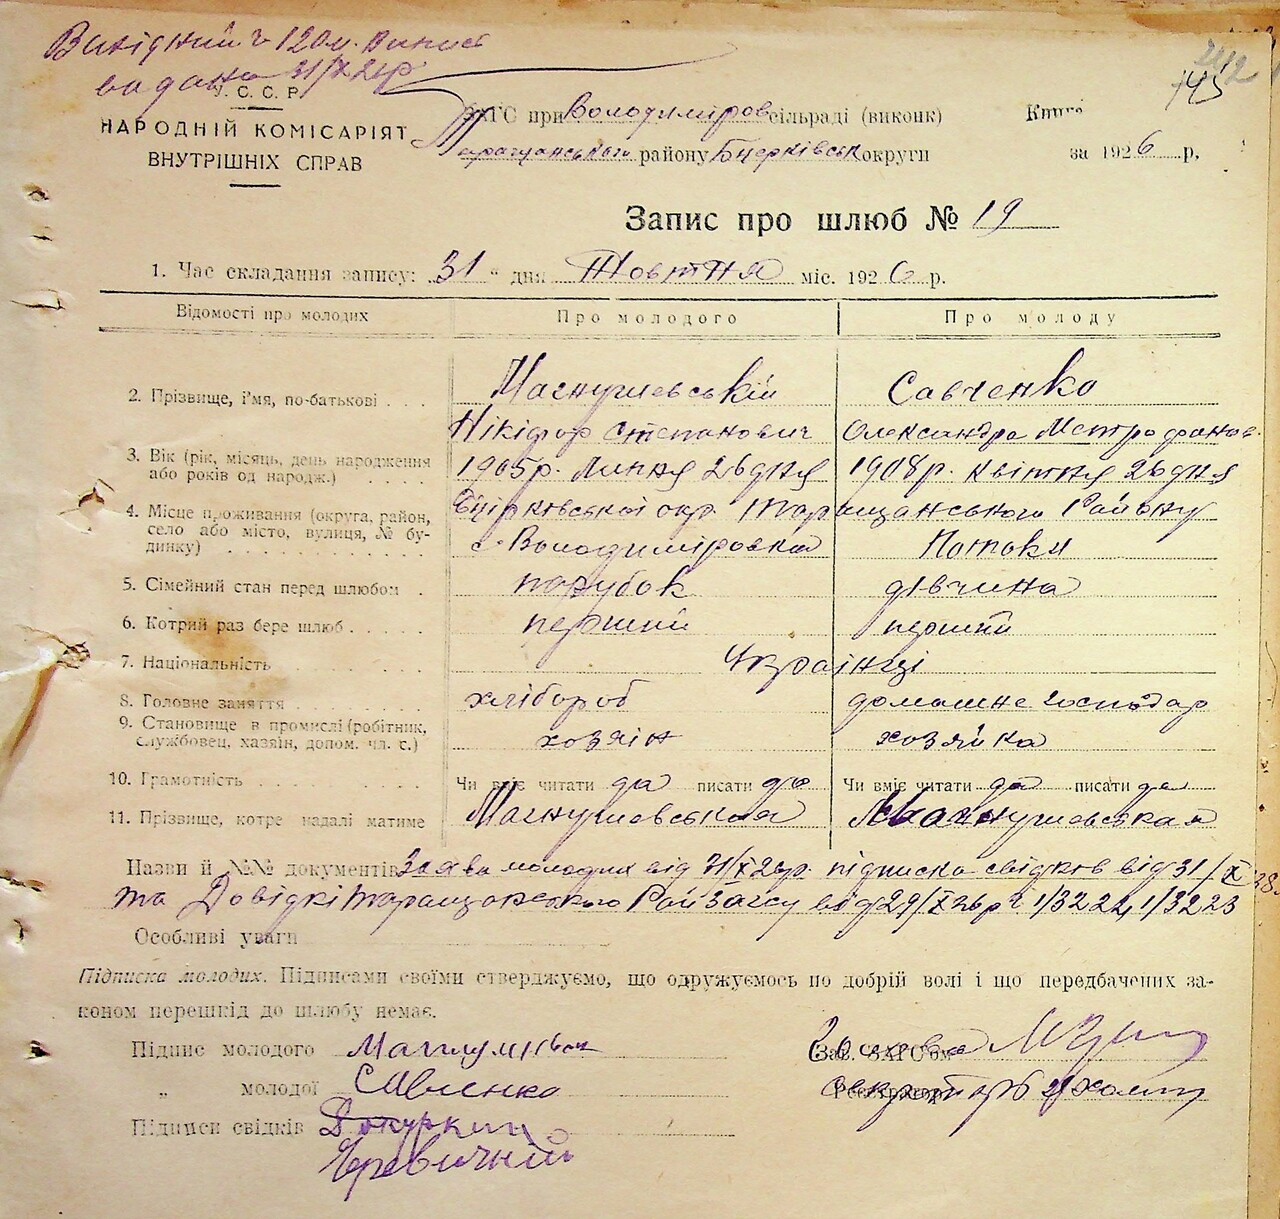 Вихідний ч 120 м. Випись
видана 31/X 26р.
742
745
У. С. С. Р.
НАРОДНІЙ КОМІСАРІЯТ
ВНУТРІШНІХ СПРАВ
ЗАГС при Володимиров сільраді (виконк)
Таращанського району Бцерківськ округи
Книга
за 1926 р.
Запис про шлюб № 19
1. Час складання запису: 31 " дня Жовтня міс. 1926 р.
Відомості про молодих Про молодого Про молоду
2. Прізвище, ім'я, по-батькові Магнушевський Савченко
Нікіфор Степанович Олександра Метрофанов.
3. Вік (рік, місяць, день народження або років од народж.) 1905р. Липня 26 дня 1908р. Квітня 26 дня
4. Місце проживання (округа, район, село або місто, вулиця, № будинку) Бцірківської окр. Таращанського Району
с. Володимировка Потоки
5. Сімейний стан перед шлюбом парубок дівчина
6. Котрий раз бере шлюб перший перший
7. Національність Українці
8. Головне заняття хлібороб домашне господар
9. Становище в промислі (робітник, службовец, хазяїн, допом. чл. с.) хозяін хозяйка
10. Грамотність Чи вміє читати да писати да Чи вміє читати да писати да
11. Прізвище, котре надалі матиме Магнушевський Магнушевская
Назви й №№ документів Заява молодих від 31/X 26р. підписка свідків від 31/X 26.
та Довідкі Таращанського РайЗагсу від 29/X 26р ч 1/3222, 1/3223
Особливі уваги
Підписка молодих. Підписами своїми стверджуємо, що одружуємось по добрій волі і що передбачених за-
коном перешкід до шлюбу немає.
Підпис молодого
" молодої Савченко
Підписи свідків
Черевичній
Зав. ЗАГС'ом Голова
Реєстратор секретарь